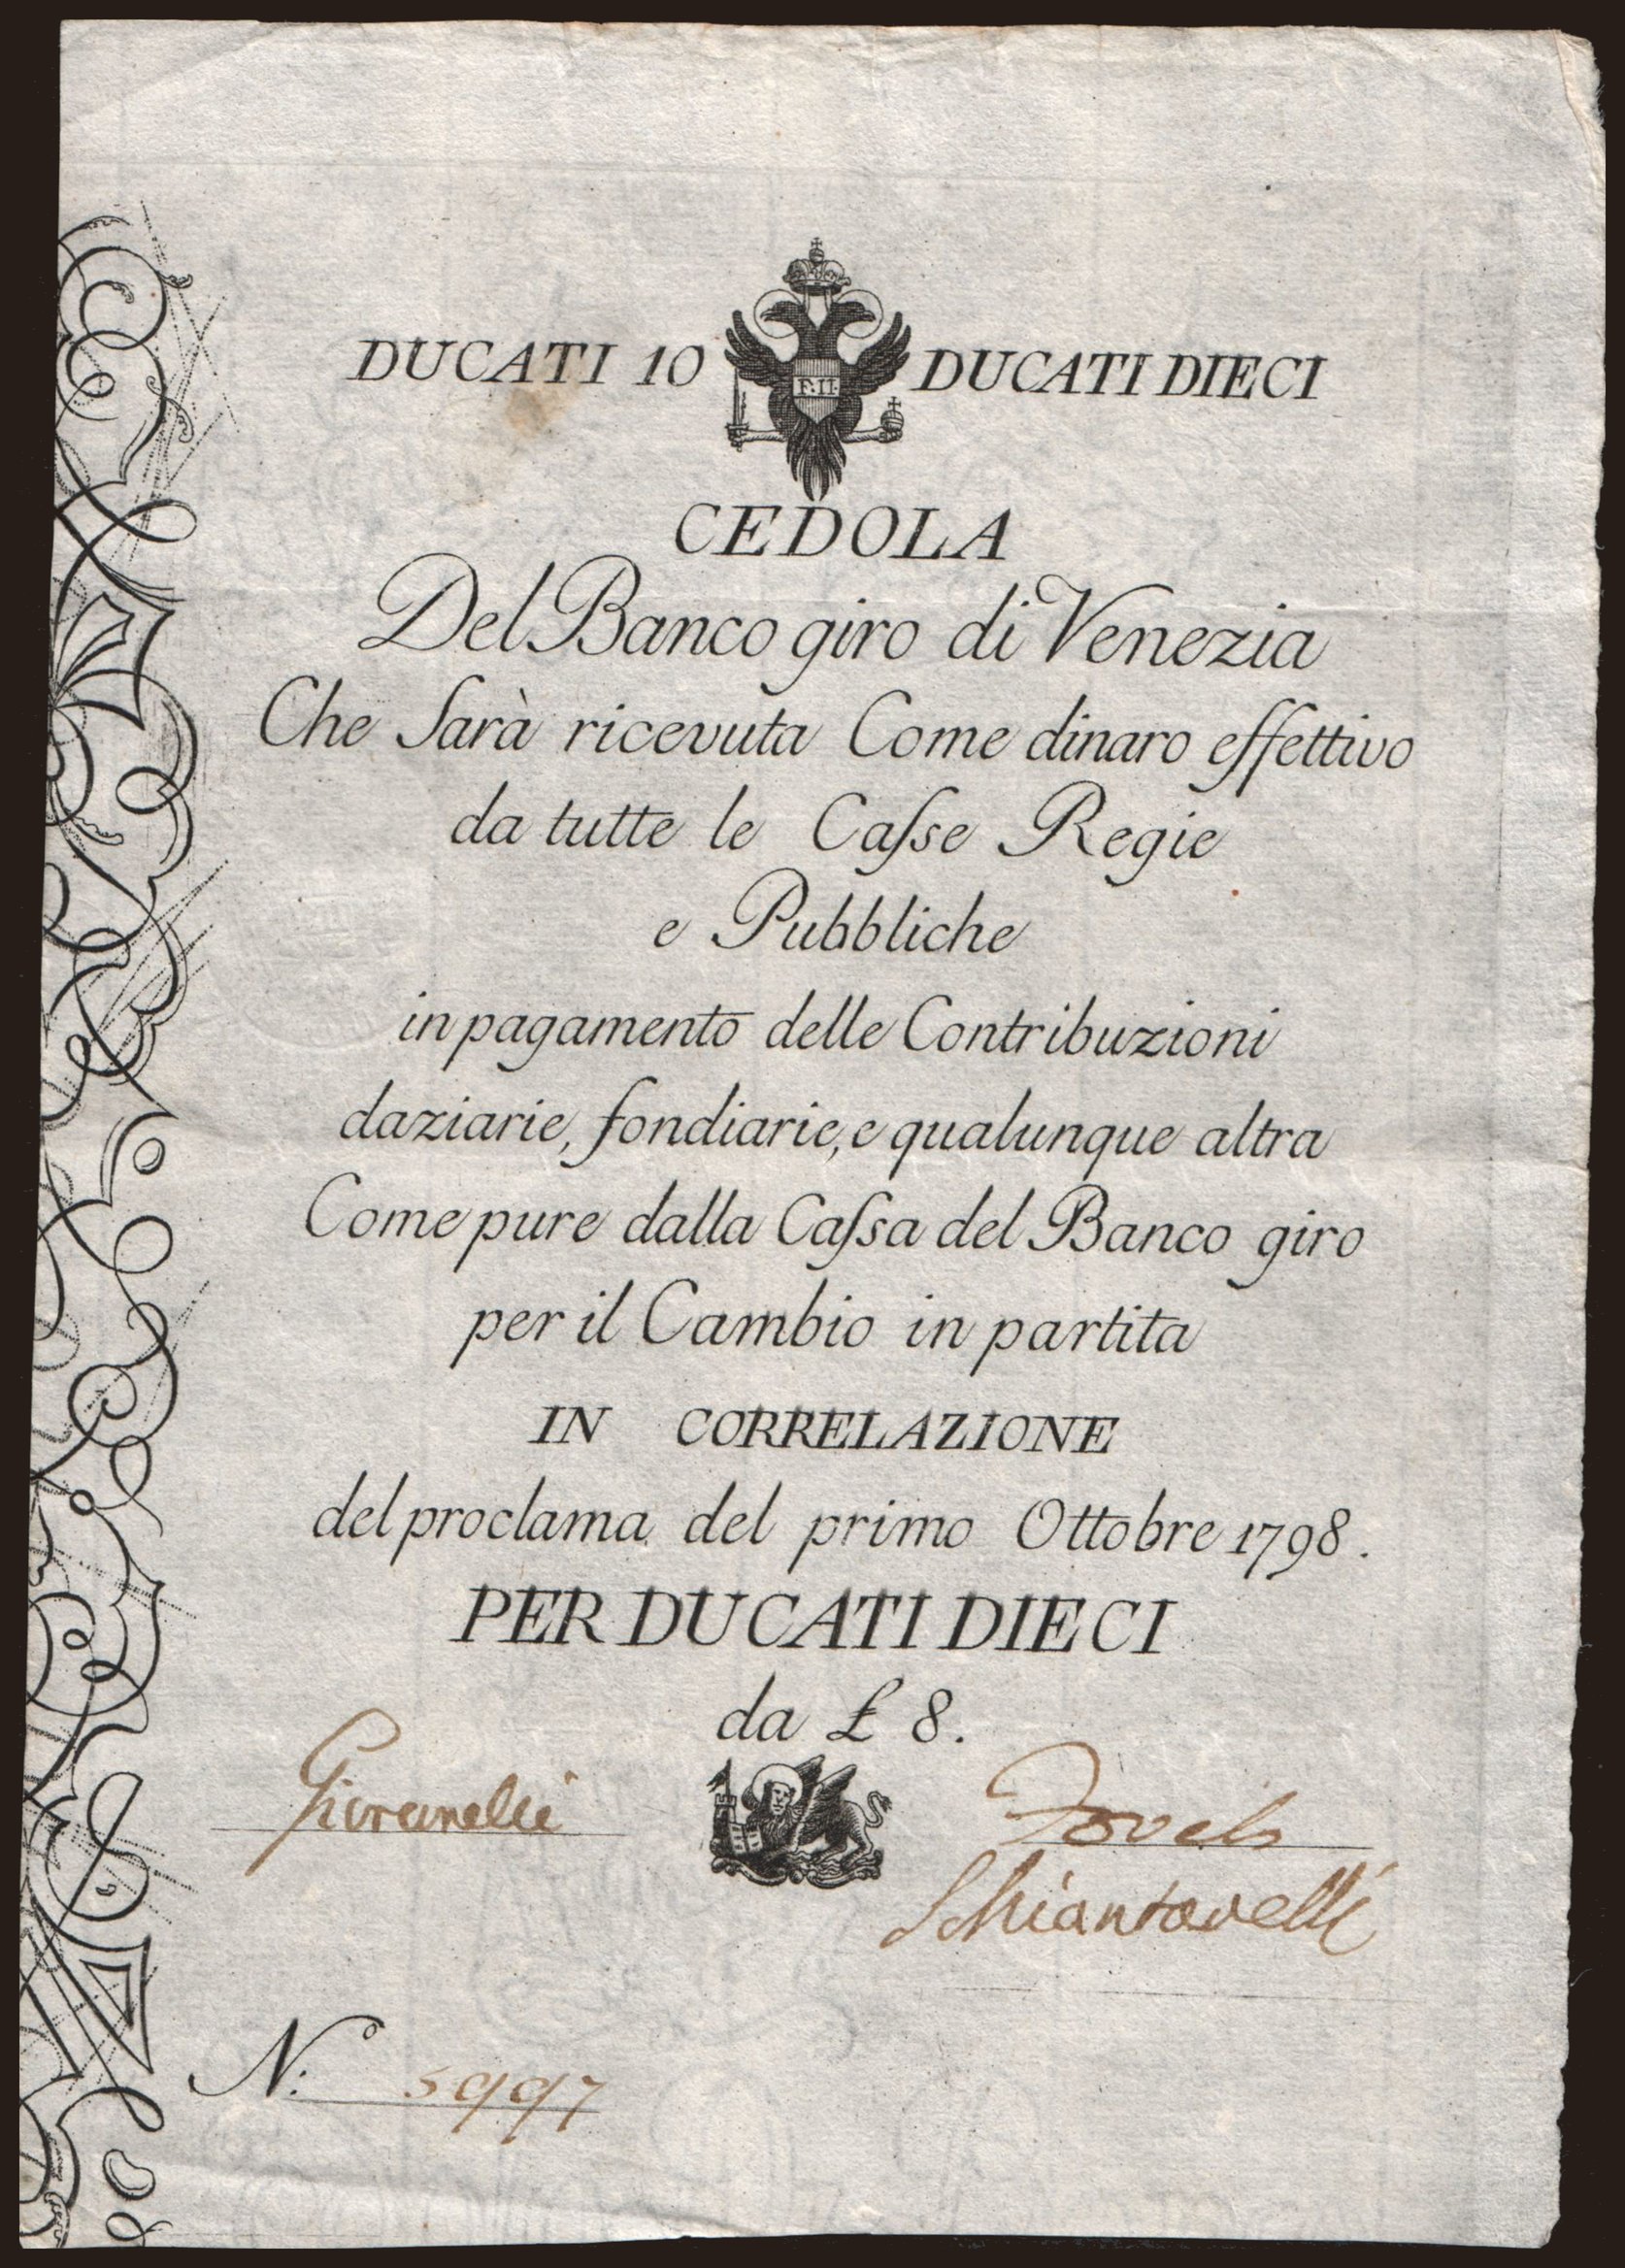 DUCATI 10 DUCATI DIECI
F.II.
CEDOLA
Del Banco giro di Venezia
Che Sarà ricevuta Come dinaro effettivo
da tutte le Caſse Regie
e Pubbliche
in pagamento delle Contribuzioni
daziarie, fondiarie, e qualunque altra
Come pure dalla Caſsa del Banco giro
per il Cambio in partita
IN CORRELAZIONE
del proclama del primo Ottobre 1798.
PER DUCATI DIECI
da £ 8.
Schiantarelli
N.º 5997